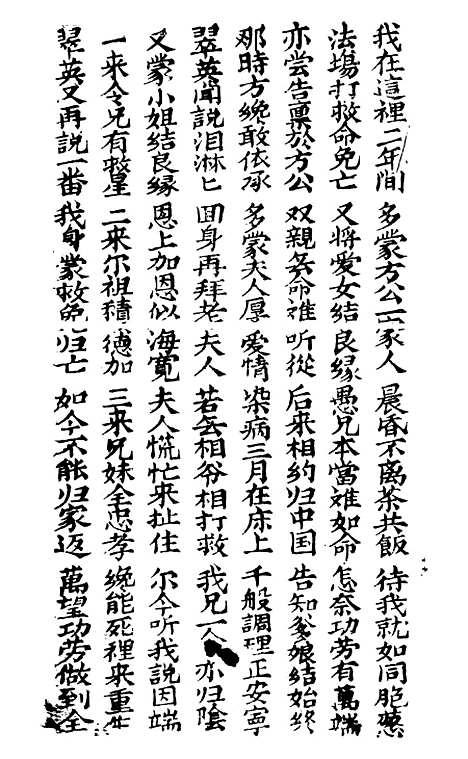 我在這裡二年間 多蒙方公一家人 晨昏不离茶共飯 待我就如同胞
法場打救命免亡 又將爱女結良緣 愚兄本當难如命 怎奈功劳有萬端
亦尝告禀於方公 双親無命难听從 后来相約归中国 告知爹娘結始終
那時方纔敢依承 多蒙夫人厚爱情 染病三月在床上 千般調理正安寧
翠英聞說泪淋匕 回身再拜老夫人 若無相爷相打救 我兄一人亦归陰
又蒙小姐結良緣 恩上加恩似海寬 夫人慌忙来扯住 尔今听我說因端
一来令兄有救星 二来尔祖積德加 三来兄妹全忠孝 纔能死裡来重生
翠英又再說一番 我身蒙救免归亡 如今不能归家返 萬望功劳做到全